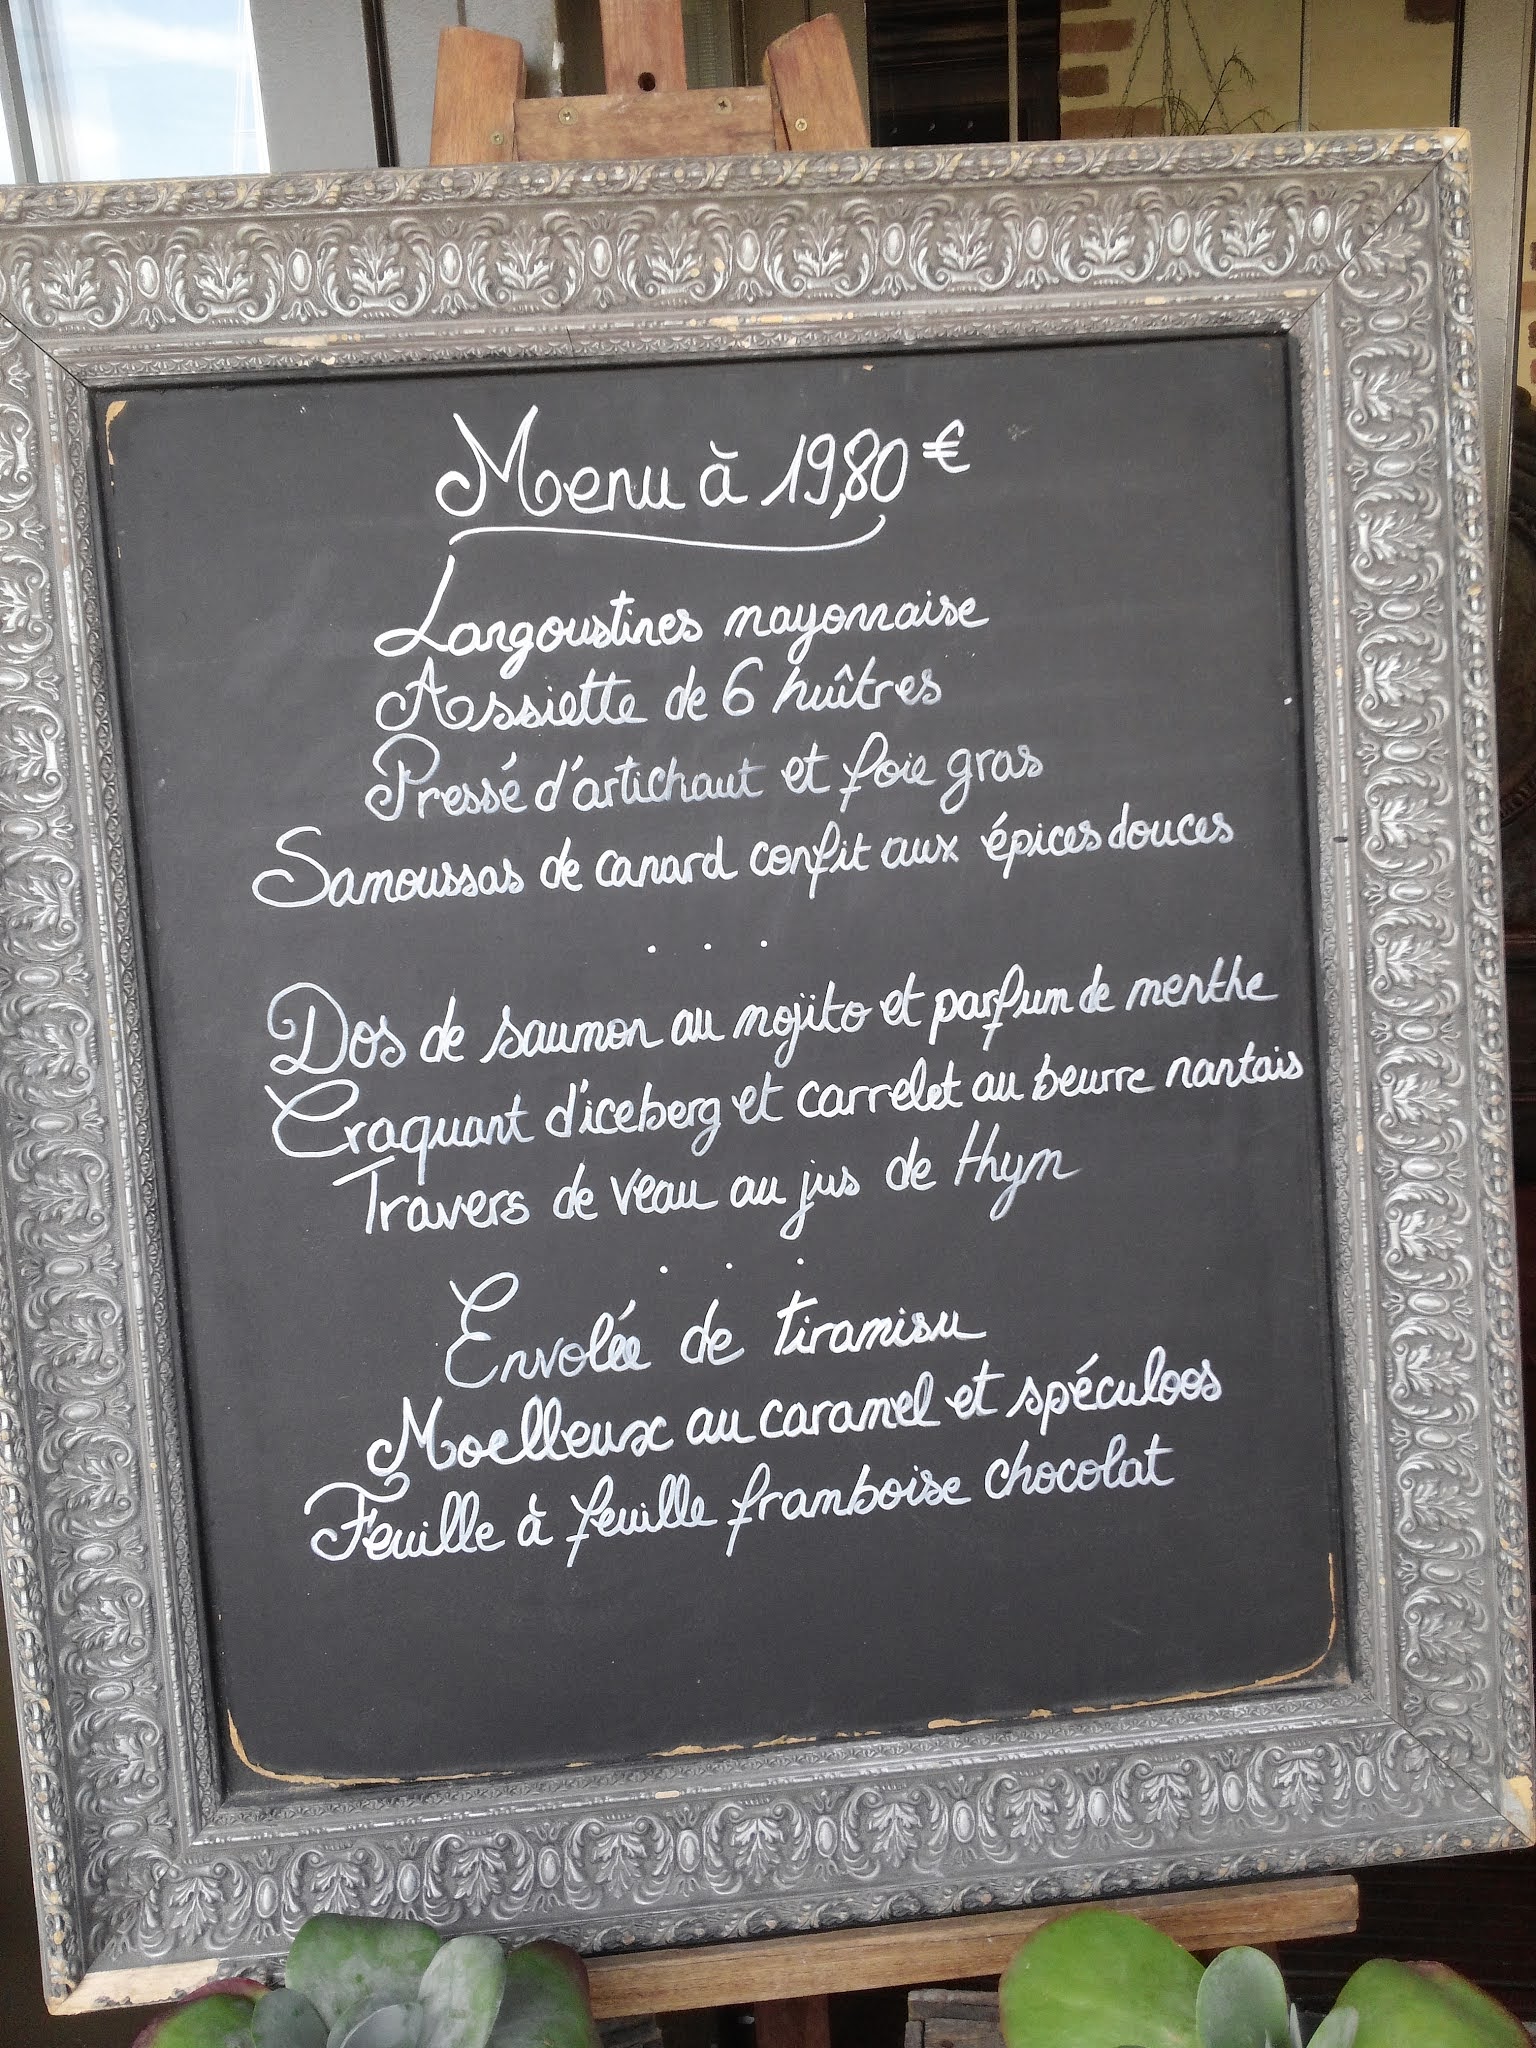 Menu à 19,80 €
Langoustines mayonnaise
Assiette de 6 huîtres
Pressé d'artichaut et foie gras
Samoussas de canard confit aux épices douces
. . .
Dos de saumon au mojito et parfum de menthe
Craquant d'iceberg et carrelet au beurre nantais
Travers de veau au jus de thym
. . .
Envolée de tiramisu
Moelleux au caramel et spéculoos
Feuille à feuille framboise chocolat